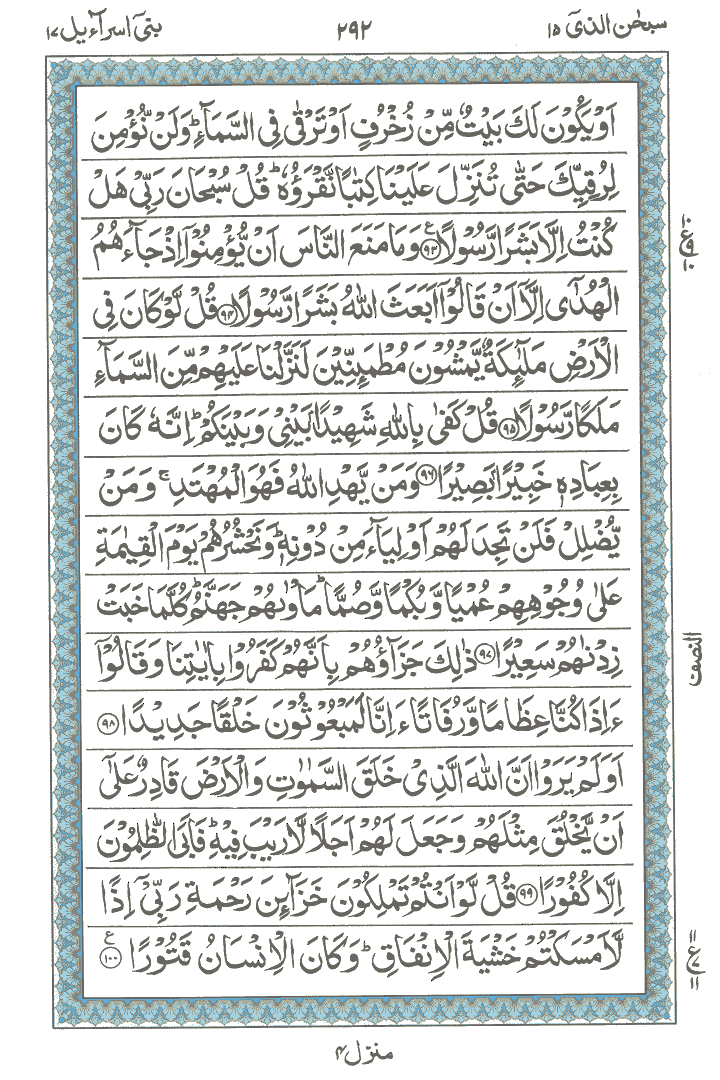 سبحٰن الذیٓ ١٥
٢٩٢
بنیٓ اسرآءیل ١٧
اَوۡ يَكُوۡنَ لَكَ بَيۡتٌ مِّنۡ زُخۡرُفٍ اَوۡ تَرۡقٰى فِى السَّمَآءِ ؕ وَلَنۡ نُّؤۡمِنَ
لِرُقِيِّكَ حَتّٰى تُنَزِّلَ عَلَيۡنَا كِتٰبًا نَّقۡرَؤُهٗ ؕ قُلۡ سُبۡحَانَ رَبِّىۡ هَلۡ
كُنۡتُ اِلَّا بَشَرًا رَّسُوۡلًا ﴿۹۳﴾ ع وَمَا مَنَعَ النَّاسَ اَنۡ يُّؤۡمِنُوۡۤا اِذۡ جَآءَهُمُ
الۡهُدٰٓى اِلَّاۤ اَنۡ قَالُوۡۤا اَبَعَثَ اللّٰهُ بَشَرًا رَّسُوۡلًا ﴿۹۴﴾ قُلۡ لَّوۡ كَانَ فِى
الۡاَرۡضِ مَلٰٓٮِٕكَةٌ يَّمۡشُوۡنَ مُطۡمَٮِٕنِّيۡنَ لَنَزَّلۡنَا عَلَيۡهِمۡ مِّنَ السَّمَآءِ
مَلَكًا رَّسُوۡلًا ﴿۹۵﴾ قُلۡ كَفٰى بِاللّٰهِ شَهِيۡدًۢا بَيۡنِىۡ وَبَيۡنَكُمۡ ؕ اِنَّهٗ كَانَ
بِعِبَادِهٖ خَبِيۡرًۢا بَصِيۡرًا ﴿۹۶﴾ وَمَنۡ يَّهۡدِ اللّٰهُ فَهُوَ الۡمُهۡتَدِ ۚ وَمَنۡ
يُّضۡلِلۡ فَلَنۡ تَجِدَ لَهُمۡ اَوۡلِيَآءَ مِنۡ دُوۡنِهٖ ؕ وَنَحۡشُرُهُمۡ يَوۡمَ الۡقِيٰمَةِ
عَلٰى وُجُوۡهِهِمۡ عُمۡيًا وَّبُكۡمًا وَّصُمًّا ؕ مَاۡوٰٮهُمۡ جَهَنَّمُ ؕ كُلَّمَا خَبَتۡ
زِدۡنٰهُمۡ سَعِيۡرًا ﴿۹۷﴾ ذٰلِكَ جَزَآؤُهُمۡ بِاَنَّهُمۡ كَفَرُوۡا بِاٰيٰتِنَا وَقَالُوۡۤا
ءَاِذَا كُنَّا عِظَامًا وَّرُفَاتًا ءَاِنَّا لَمَبۡعُوۡثُوۡنَ خَلۡقًا جَدِيۡدًا ﴿۹۸﴾
اَوَلَمۡ يَرَوۡا اَنَّ اللّٰهَ الَّذِىۡ خَلَقَ السَّمٰوٰتِ وَالۡاَرۡضَ قَادِرٌ عَلٰٓى
اَنۡ يَّخۡلُقَ مِثۡلَهُمۡ وَجَعَلَ لَهُمۡ اَجَلًا لَّا رَيۡبَ فِيۡهِ ؕ فَاَبَى الظّٰلِمُوۡنَ
اِلَّا كُفُوۡرًا ﴿۹۹﴾ قُلۡ لَّوۡ اَنۡتُمۡ تَمۡلِكُوۡنَ خَزَآٮِٕنَ رَحۡمَةِ رَبِّىۡۤ اِذًا
لَّاَمۡسَكۡتُمۡ خَشۡيَةَ الۡاِنۡفَاقِ ؕ وَكَانَ الۡاِنۡسَانُ قَتُوۡرًا ﴿۱۰۰﴾ ع
النصف
ع ١١
منزل ۴